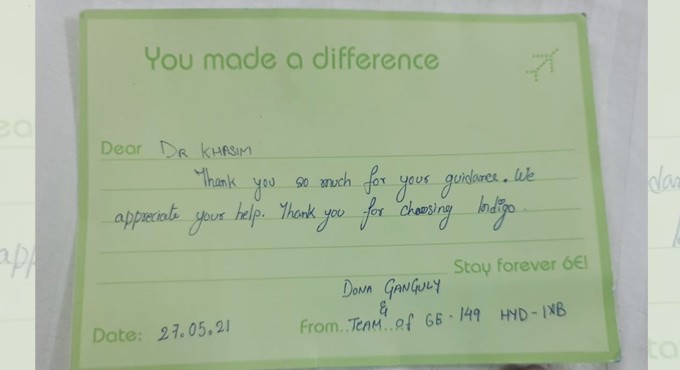 You made a difference
Dear DR KHASIM
Thank you so much for your guidance. We
appreciate your help. Thank you for choosing Indigo.
Stay forever 6E!
DONA GANGULY
&
Date: 27.05.21 From..TEAM of 6E - 149 HYD - IXB